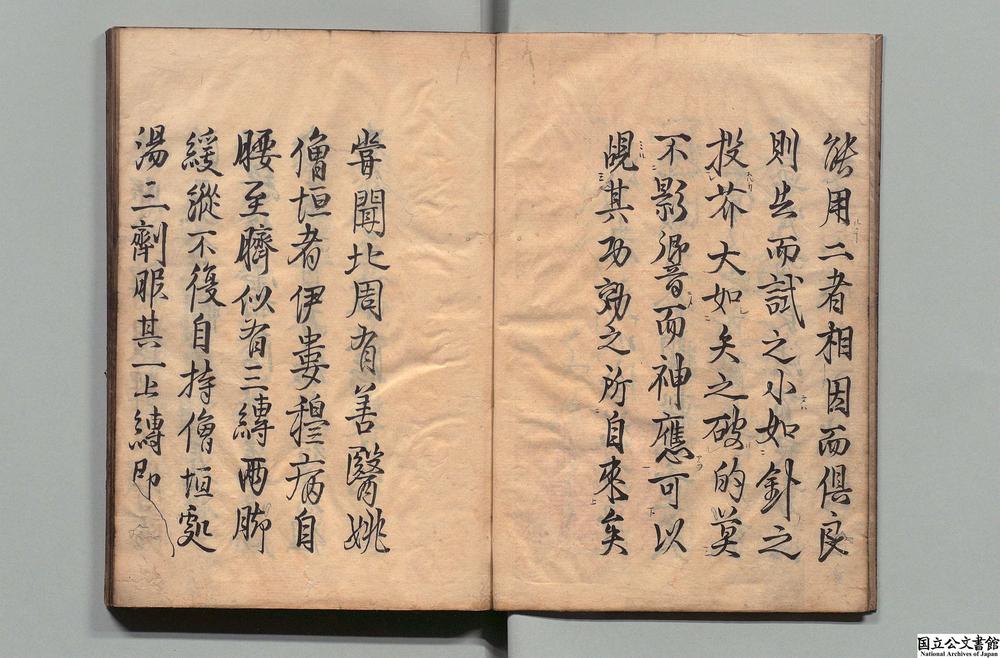 能用二者相因而俱良
則去而試之小如針之
投芥大如矢之破的莫
不影響而神應可以
覘其功効之所自來矣
嘗聞北周有善醫姚
僧垣者伊婁穆病自
腰至臍似有三縛兩脚
緩縱不復自持僧垣處
湯三劑服其一上縛即
国立公文書館
National Archives of Japan